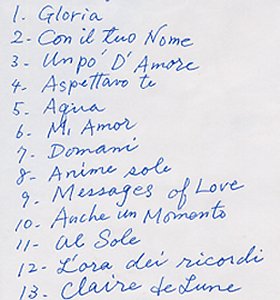 1. Gloria
2- Con il tuo Nome
3- Un po' D'Amore
4. Aspettavo te
5- Aqua
6- Mi Amor
7- Domani
8- Anime sole
9- Messages of Love
10- Anche un Momento
11- al Sole
12- L'ora dei ricordi
13- Claire de Lune